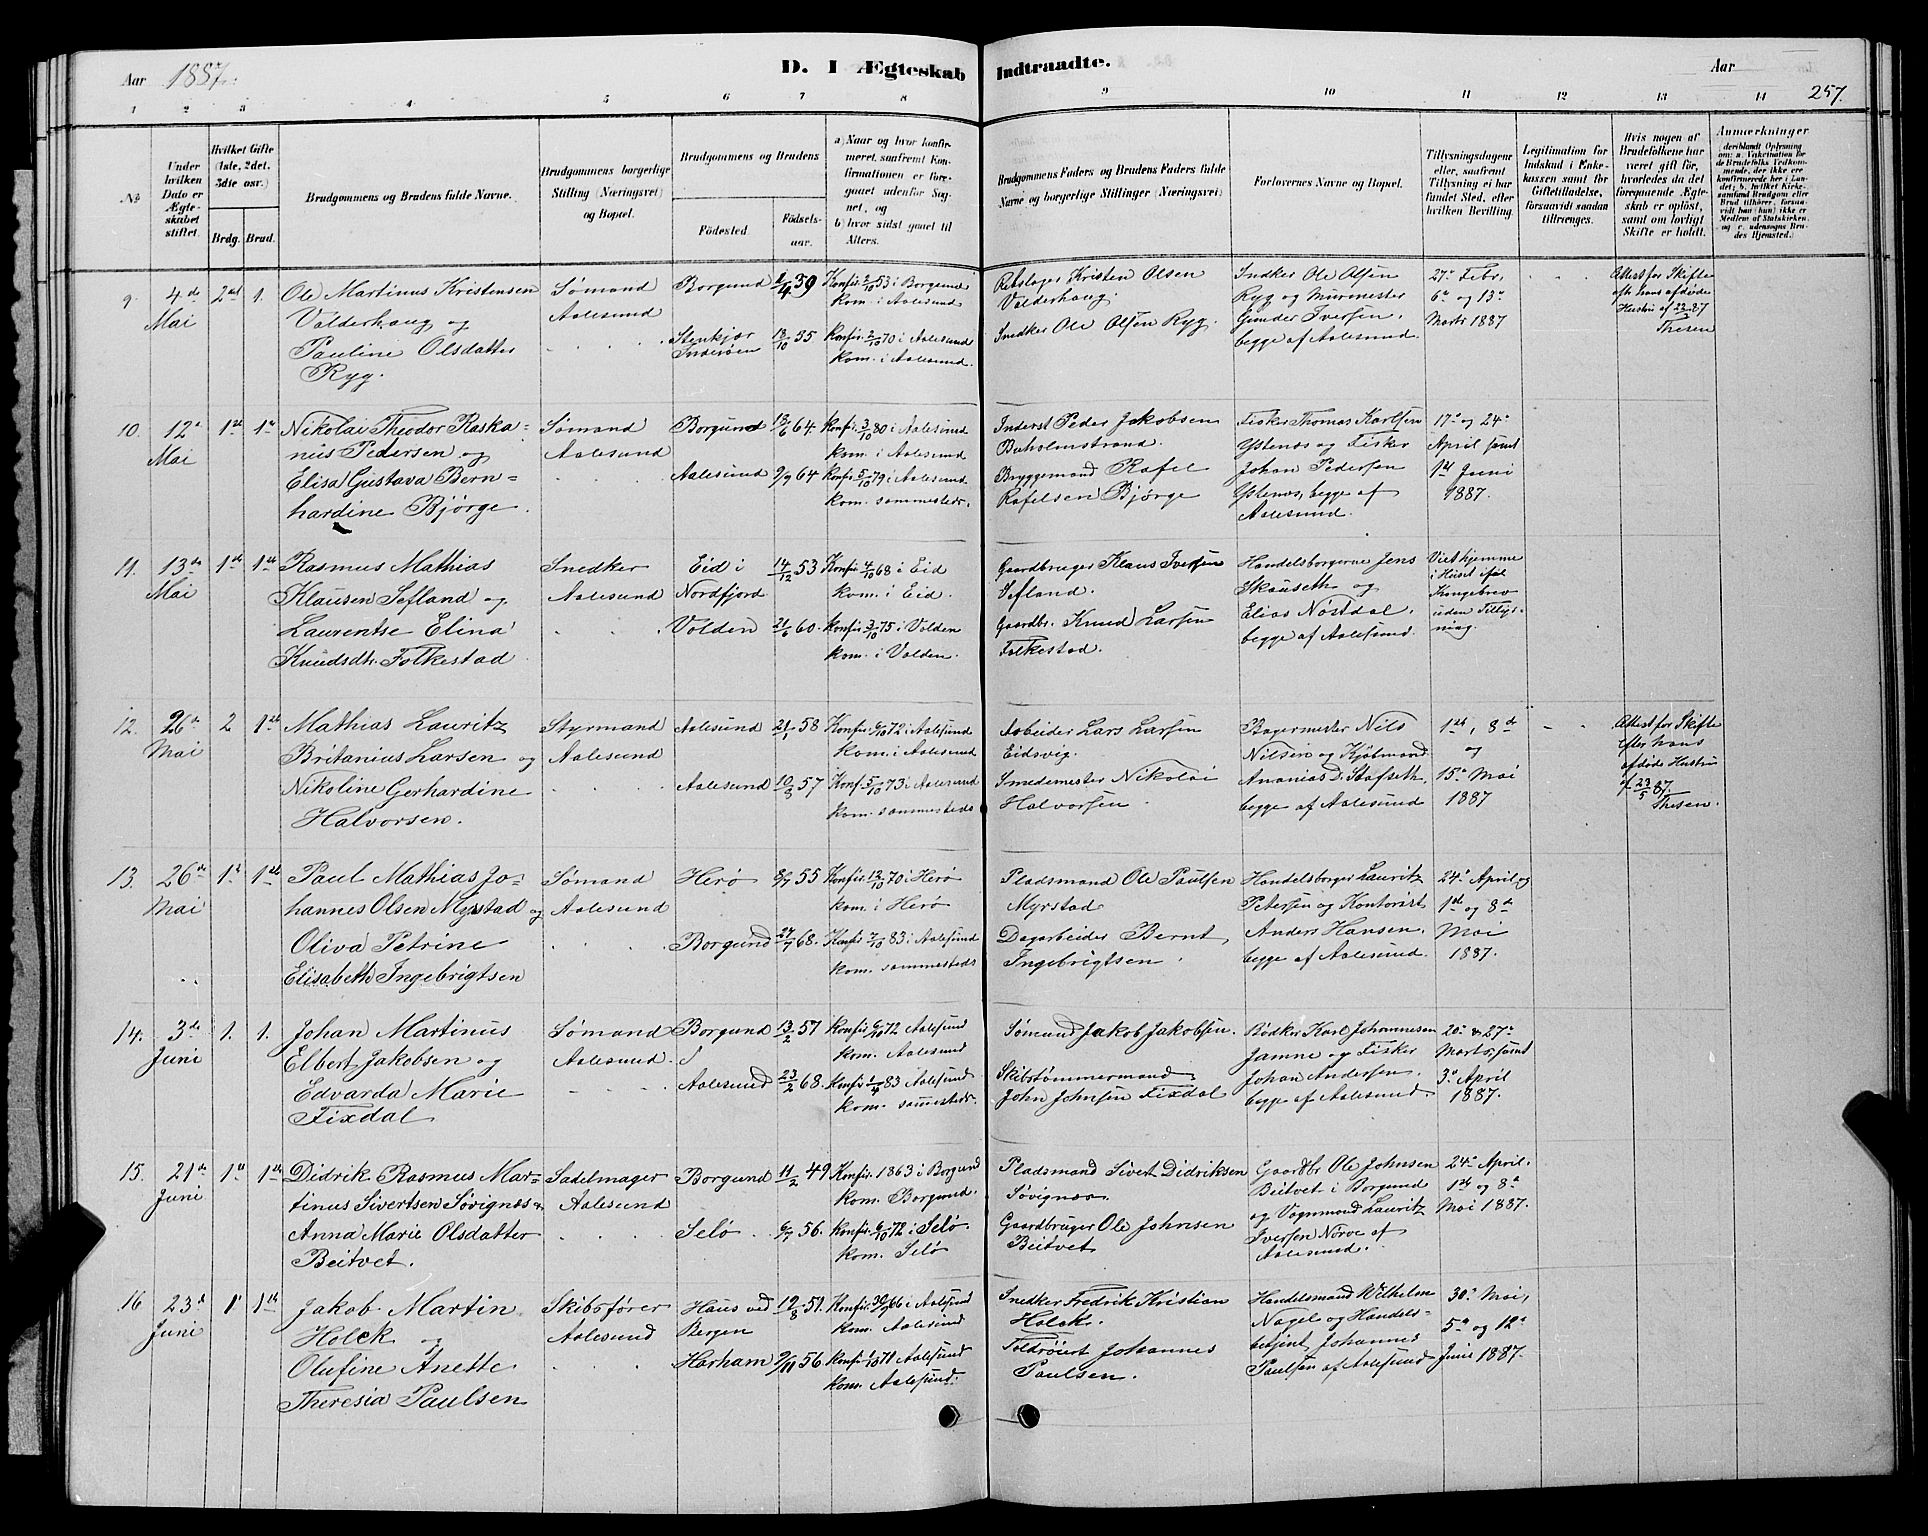 Aar 1887.
D. I Ægteskab Indtraadte.
Aar
257.
1 2 3 4 5 6 7 8 9 10 11 12 13 14
№
Under hvilken Dato er Ægteskabet stiftet.
Hvilket Gifte (1ste, 2det, 3die osv.)
Brdg. Brud.
Brudgommens og Brudens fulde Navne.
Brudgommens borgerlige Stilling (Næringsvei) og Bopæl.
Brudgommens og Brudens
Fødested
Fødsels-aar.
a) Naar og hvor konfirmeret, saafremt Konfirmationen er foregaaet udenfor Sognet, og
b) hvor sidst gaaet til Alters.
Brudgommens Faders og Brudens Faders fulde Navne og borgerlige Stillinger (Næringsvei)
Forlovernes Navne og Bopæl.
Tillysningsdagene eller, saafremt Tillysning ei har fundet Sted, efter hvilken Bevilling.
Legitimation for Indskud i Enkekassen samt for Giftetilladelse, forsaavidt saadan tiltrænges.
Hvis nogen af Brudefolkene har været gift før, hvorledes da det foregaaende Ægteskab er opløst, samt om lovligt Skifte er holdt.
Anmærkninger
9. 4de Mai 2det 1.
Ole Martinus Kristensen
Valderhaug og
Pauline Olsdatter
Ryg.
Sømand
Aalesund
Borgund 39
Stenkjær
Inderøen 13/10 55
Konfir. 2/10 53 i Borgund
kom. i Aalesund
Konfir. 2/10 70 i Aalesund
kom. i Aalesund.
Kristen Olsen
Valderhaug.
Snedker Ole Olsen Ryg.
Snedker Ole Olsen
Ryg og Murmester
Gunder Iversen,
begge af Aalesund.
27de Febr,
6te og 13de
Marts 1887
Attest for Skifte
efter hans afdøde
Hustru
Thesen
10. 12te Mai 1ste 1ste
Nikolai Theodor Raska=
nus Pedersen og
Elisa Gustava Bern=
hardine Bjørge.
Sømand
Aalesund
Borgund 13/6 64.
Aalesund 9/9 64
Konfir. 3/10 80 i Aalesund
kom. i Aalesund
Konfir. 5/10 79 i Aalesund
kom. sammesteds.
Inderst Peder Jakobsen
Buholmstrand.
Bryggemand Rafel
Rafelsen Bjørge
Fisker Thomas Karlsen
Ystenes og Fisker
Johan Pedersen
Ystenes, begge af
Aalesund.
17de og 24de
April samt
1ste Juni
1887.
11. 13de Mai 1ste 1ste
Rasmus Mathias
Klausen Sefland og
Laurentse Elina
Knudsdtr. Folkestad
Snedker
Aalesund
Eid i
Nordfjord 14/12 53
Volden 21/6 60.
Konfir. 4/10 68 i Eid
kom. i Eid.
Konfir. 3/10 75 i Volden
kom. i Volden.
Gaardbruger Klaus Iversen
Sefland.
Gaardbr. Knud Larsen
Folkestad.
Handelsborgerne Jens
Skouseth og
Elias Nøstdal,
begge af Aalesund.
Viet hjemme
i Huset iføl
Kongebrev
uden Tillys-
ning.
12. 26de Mai 2 1ste
Mathias Lauritz
Britanius Larsen og
Nikoline Gerhardine
Halvorsen.
Styrmand
Aalesund
Aalesund 21/1 58
Aalesund 10/3 57
Konfir. 6/10 72 i Aalesund
kom. i Aalesund
Konf. 5/10 73 i Aalesund
kom. sammesteds
Arbeider Lars Larsen
Eidsvig.
Smedemester Nikolai
Halvorsen.
Bagermester Nils
Nilsen og Kjøbmand
Ananias D. Stafseth,
begge af Aalesund
1ste, 8de
og
15de Mai
1887
Attest for Skifte
efter hans
afdøde Hustru
af 23/5 87.
Thesen.
13. 26de Mai 1ste 1ste
Paul Mathias Jo=
hannes Olsen Myrstad og
Oliva Petrine
Elisabeth Ingebrigtsen
Sømand
Aalesund
Herø 8/7 55
Borgund 27/7 68.
Konfir. 12/10 70 i Herø
kom. i Herø
Konfir. 7/10 83 i Aalesund
kom. sammesteds
Pladsmand Ole Paulsen
Myrstad
Dagarbeider Bernt
Ingebrigtsen.
Handelsborger Lauritz
Petersen og Kontorist
Anders Hansen,
begge af Aalesund.
24de April og
1ste og 8de
Mai
1887.
14. 3de Juni 1. 1.
Johan Martinus
Elbert Jakobsen og
Edvarda Marie
Fixdal
Sømand
Aalesund.
Borgund 13/2 57
Aalesund 23/2 68.
Konfir. 6/10 72 Aalesund
kom. Aalesund
Konfir. 1/4 83 Aalesund
kom. sammesteds.
Sømand Jakob Jakobsen.
Skibstømmermand
John Johnsen Fixdal
Bødker Karl Johannesen
Jamne og Fisker
Johan Andersen,
begge af Aalesund.
20de & 27de
Marts, samt
3die April
1887.
15. 21de Juni 1ste 1ste
Didrik Rasmus Mar=
tinus Sivertsen Søvignæs &
Anna Marie Olsdatter
Beitvet.
Sadelmager
Aalesund
Borgund 11/2 49
Selø 6/7 56.
Konfir. 1863 i Borgund
kom. Borgund.
Konfir. 6/10 72 i Selø
kom. Selø
Pladsmand Sivert Didriksen
Søvignæs.
Gaardbruger Ole Johnsen
Beitvet
Gaardbr. Ole Johnsen
Beitvet i Borgund
og Vognmand Lauritz
Iversen Nørve af
Aalesund.
24de April.
1ste og 8de
Mai 1887.
16 23de Juni 1 1ste
Jakob Martin
Holck og
Olufine Anette
Theresia Paulsen
Skibsfører
Aalesund
Haus ved
Bergen 19/8 51.
Harham 9/11 56.
Konfir. 66 i Aalesund
kom. Aalesund
Konfir. 1/10 71 Aalesund
kom. Aalesund.
Snedker Fredrik Kristian
Holck.
Toldrøiert Johannes
Paulsen.
Handelsmand Wilhelm
Nagel og Handels-
betjent Johannes
Paulsen af Aalesund
30te Mai,
5te og 12te
Juni 1887.